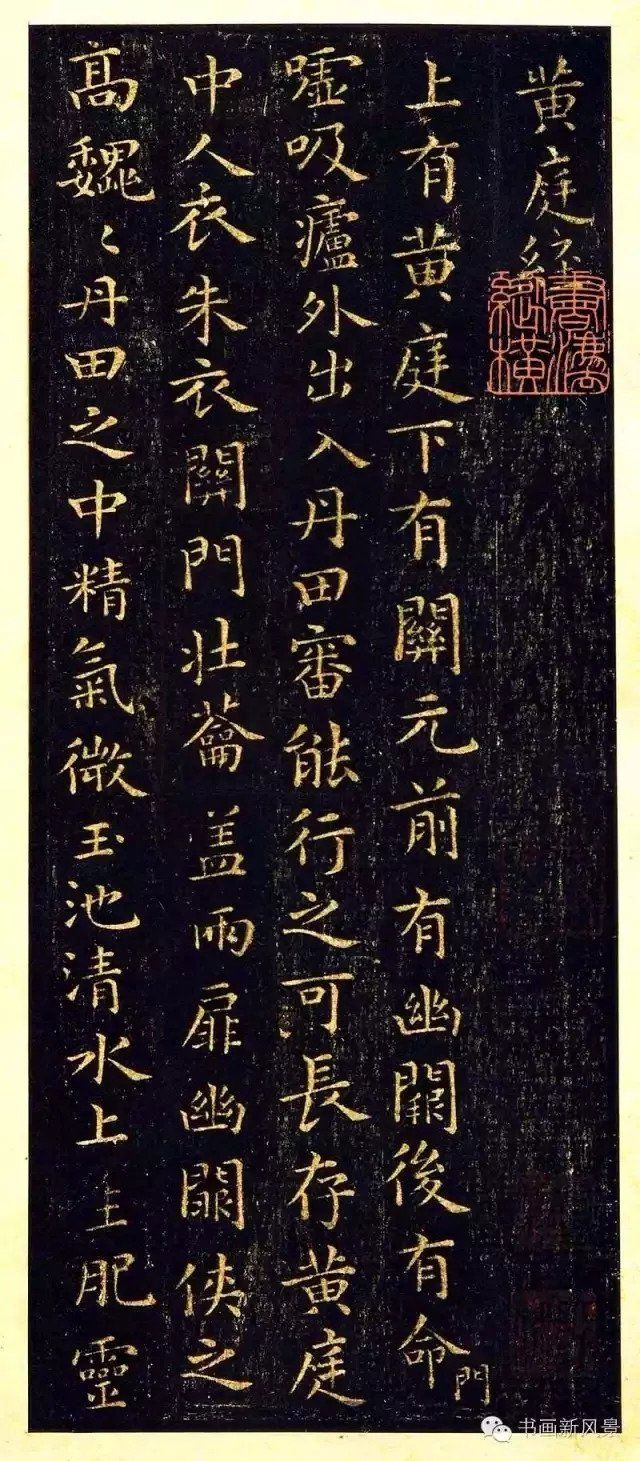 黃庭經
上有黃庭下有關元前有幽闕後有命門
噓吸廬外出入丹田審能行之可長存黃庭
中人衣朱衣關門壯蘥盖兩扉幽闕俠之
高魏〻丹田之中精氣微玉池清水上生肥靈
书画新风景